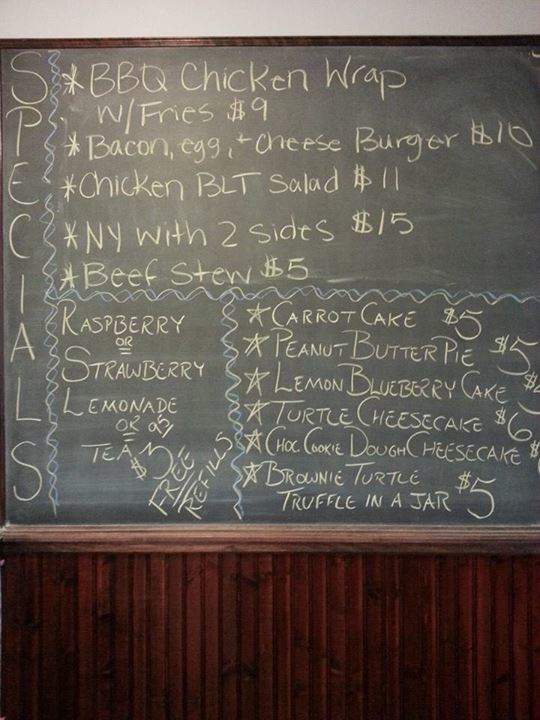 SPECIALS
*BBQ Chicken Wrap
w/Fries $9
*Bacon, egg, + cheese Burger $10
*Chicken BLT Salad $11
*NY with 2 sides $15
*Beef Stew $5
RASPBERRY
OR
STRAWBERRY
LEMONADE
OR
TEA $3
FREE
REFILLS
*CARROT CAKE $5
*PEANUT BUTTER PIE $5
*LEMON BLUEBERRY CAKE $
*TURTLE CHEESECAKE $6
*CHOC. COOKIE DOUGH CHEESECAKE $
*BROWNIE TURTLE
TRUFFLE IN A JAR $5